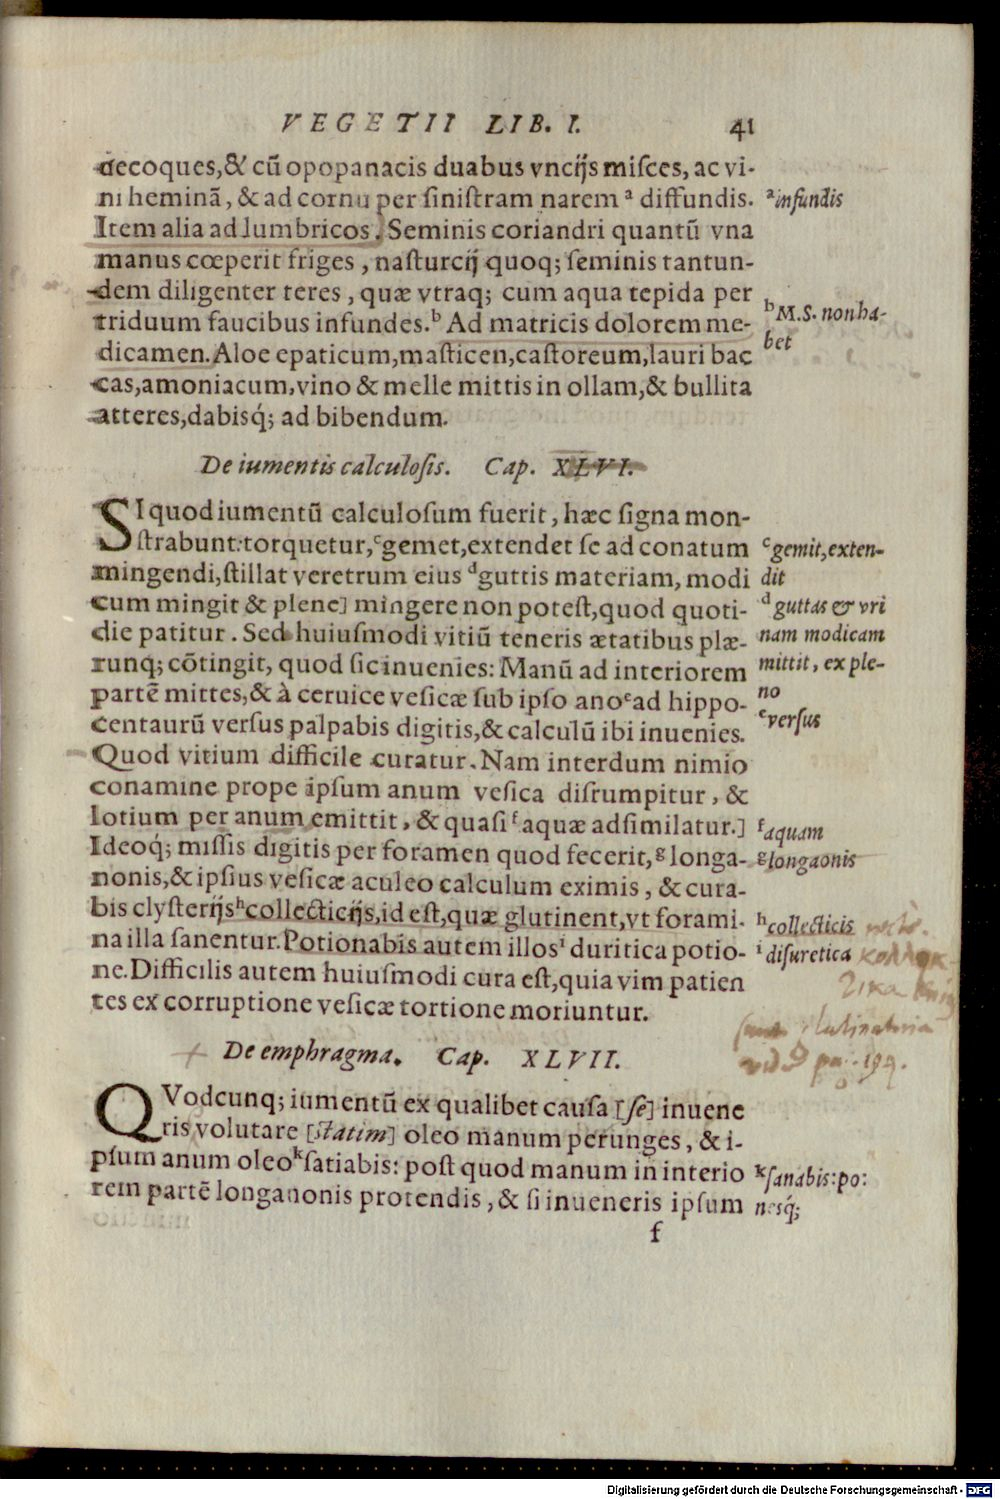 VEGETII LIB. I. 41
decoques,& cũ opopanacis duabus vncijs misces, ac vi-
ni heminã, & ad cornu per sinistram narem ᵃ diffundis.
ᵃ infundis
Item alia ad lumbricos. Seminis coriandri quantũ vna
manus cœperit friges, nasturcij quoq; seminis tantun-
dem diligenter teres, quæ vtraq; cum aqua tepida per
triduum faucibus infundes.ᵇ Ad matricis dolorem me-
ᵇ M.S. non ha-
bet
dicamen. Aloe epaticum,masticen,castoreum,lauri bac
cas,amoniacum,vino & melle mittis in ollam,& bullita
atteres,dabisq́; ad bibendum.
De iumentis calculosis. Cap. XLVI.
SI quod iumentũ calculosum fuerit, hæc signa mon-
strabunt:torquetur,ᶜgemet,extendet se ad conatum
ᶜgemit,exten-
dit
mingendi,stillat veretrum eius ᵈguttis materiam, modi
cum mingit & plene] mingere non potest,quod quoti-
ᵈ guttas & vri
nam modicam
mittit, ex ple-
no
die patitur. Sed huiusmodi vitiũ teneris ætatibus plæ-
runq; cõtingit, quod sic inuenies: Manũ ad interiorem
partẽ mittes,& à ceruice vesicæ sub ipso anoᵉ ad hippo-
ᵉversus
centaurũ versus palpabis digitis,& calculũ ibi inuenies.
Quod vitium difficile curatur. Nam interdum nimio
conamine prope ipsum anum vesica disrumpitur, &
lotium per anum emittit, & quasi ᶠ aquæ adsimilatur.]
ᶠaquam
Ideoq́; missis digitis per foramen quod fecerit,ᵍ longa-
ᵍlongaonis
nonis,& ipsius vesicæ aculeo calculum eximis, & cura-
bis clysterijsʰcollecticijs,id est,quæ glutinent,vt forami-
ʰcollecticis
na illa sanentur.Potionabis autem illosⁱ duritica potio-
ⁱ disuretica
ne.Difficilis autem huiusmodi cura est,quia vim patien
tes ex corruptione vesicæ tortione moriuntur.
De emphragma. Cap. XLVII.
QVodcunq; iumentũ ex qualibet causa [se] inuene
ris volutare [statim] oleo manum perunges, & i-
psum anum oleoᵏsatiabis: post quod manum in interio
ᵏsanabis:po:
nesq́;
rem partẽ longaonis protendis, & si inueneris ipsum
f
Digitalisierung gefördert durch die Deutsche Forschungsgemeinschaft - DFG